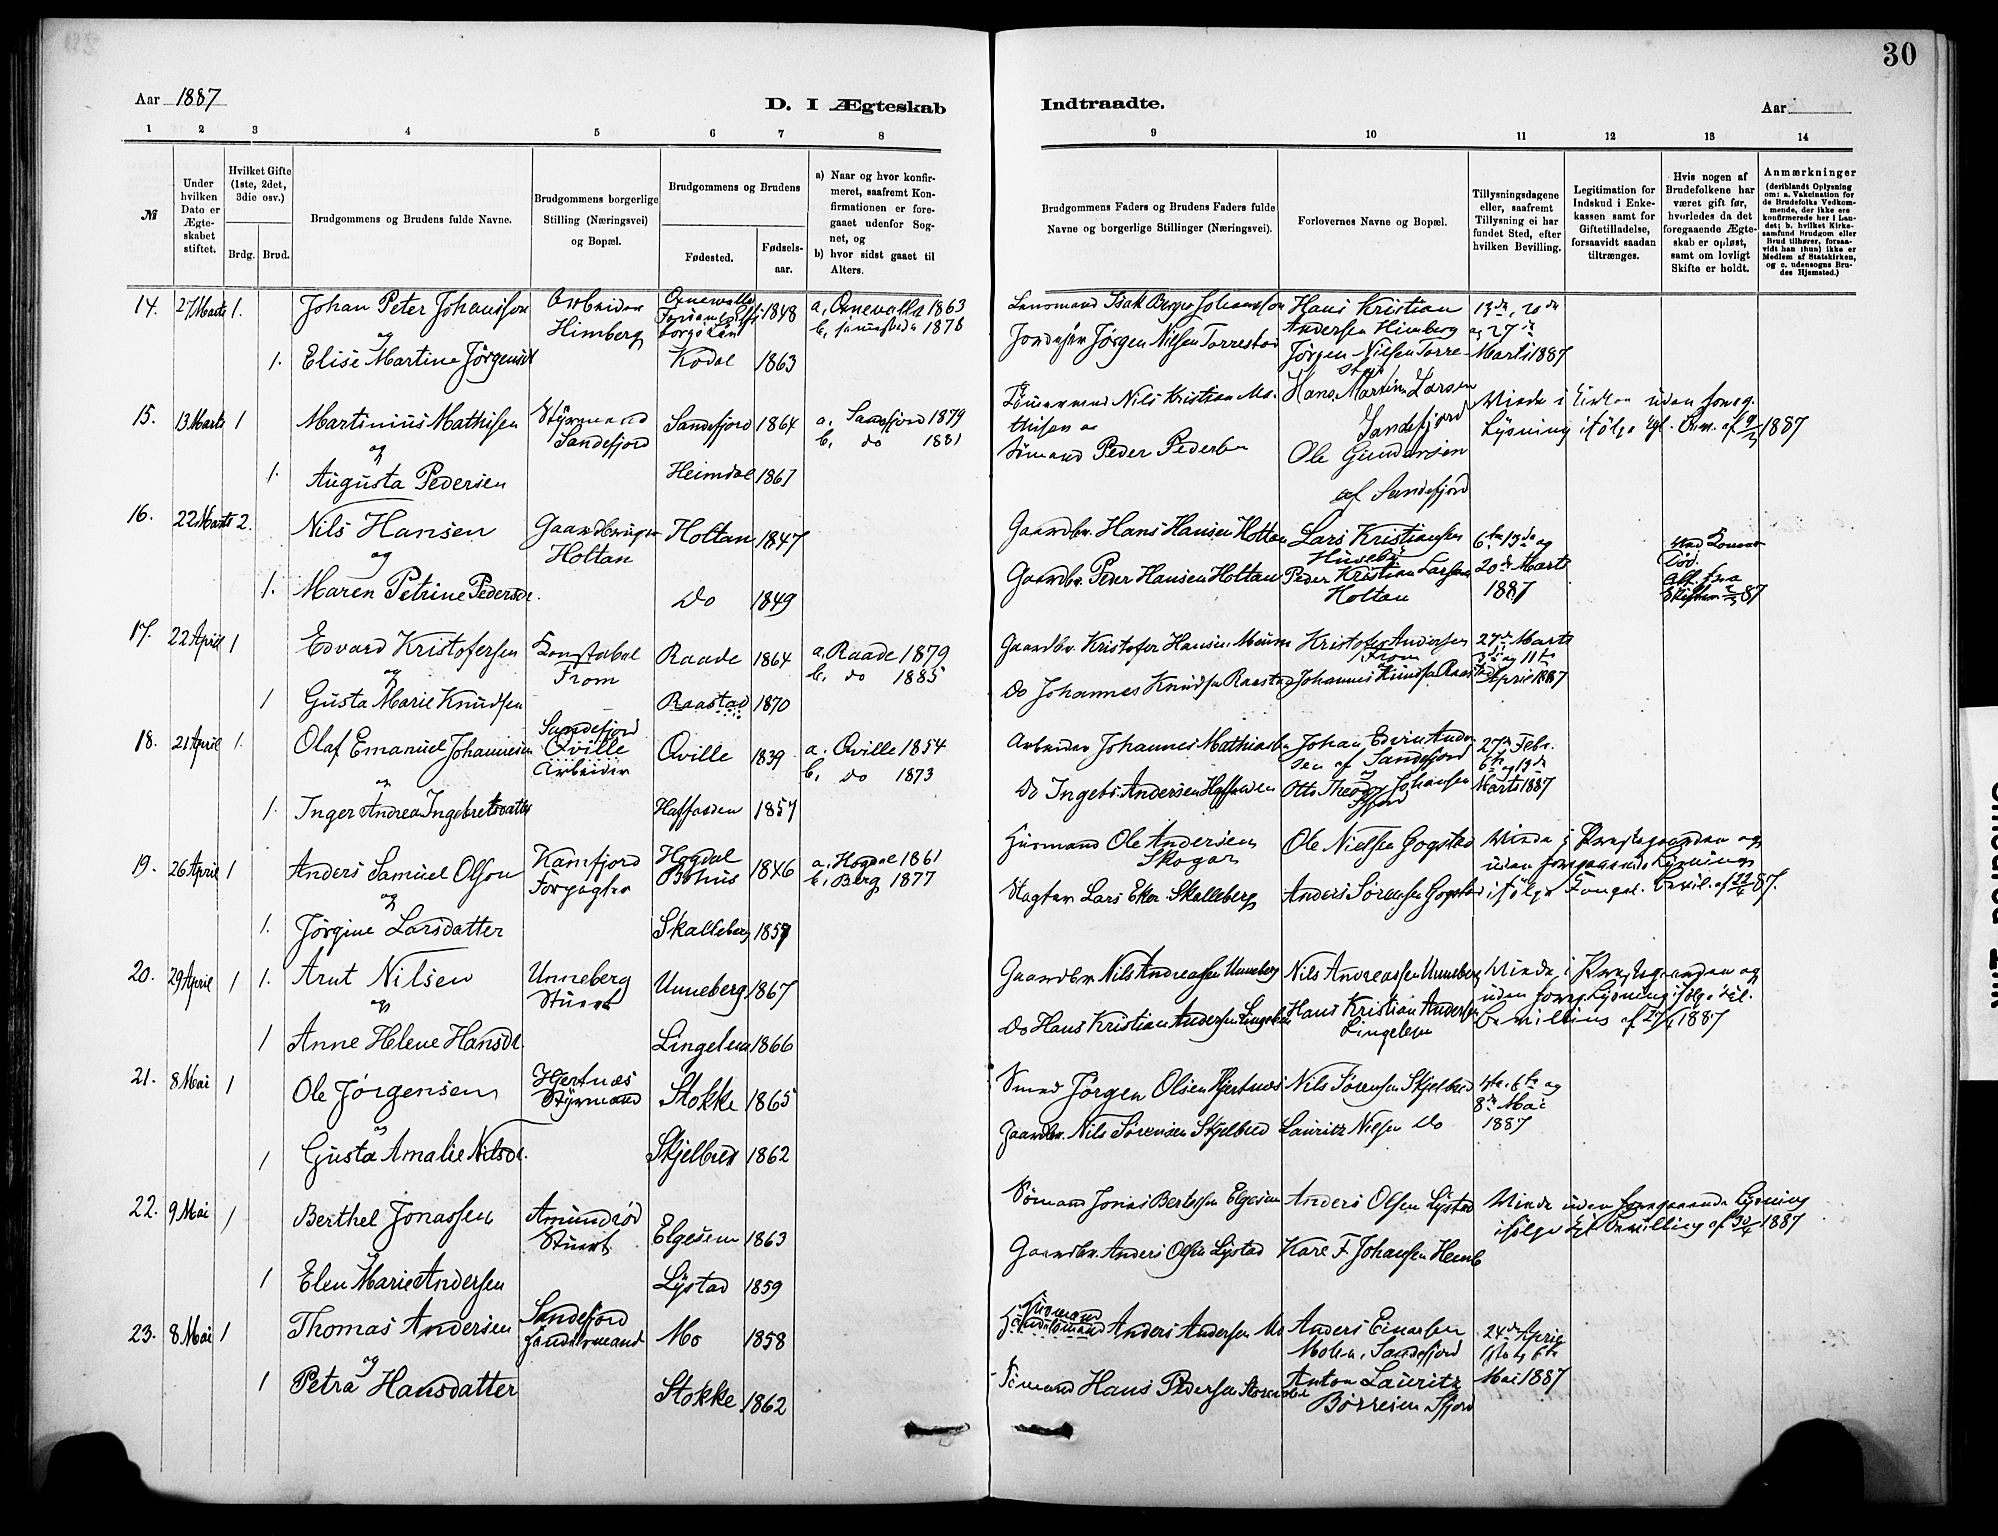 30
Aar 1887
D. I Ægteskab
Indtraadte.
Aar
1 2 3 4 5 6 7 8
9 10 11 12 13 14
№
Under hvilken Dato er Ægteskabet stiftet.
Hvilket Gifte (1ste, 2det, 3die osv.)
Brdg. Brud.
Brudgommens og Brudens fulde Navne.
Brudgommens borgerlige Stilling (Næringsvei) og Bopæl.
Brudgommens og Brudens
Fødested.
Fødselsaar.
a) Naar og hvor konfirmeret, saafremt Konfirmationen er foregaaet udenfor Sognet, og
b) hvor sidst gaaet til Alters.
Brudgommens Faders og Brudens Faders fulde Navne og borgerlige Stillinger (Næringsvei).
Forlovernes Navne og Bopæl.
Tillysningsdagene eller, saafremt Tillysning ei har fundet Sted, efter hvilken Bevilling.
Legitimation for Indskud i Enkekassen samt for Giftetilladelse, forsaavidt saadan tiltrænges.
Hvis nogen af Brudefolkene har været gift før, hvorledes da det foregaaende Ægteskab er opløst, samt om lovligt Skifte er holdt.
Anmærkninger
(deriblandt Oplysning om: a. Vakcination for de Brudefolks Vedkommende, der ikke ere konfirmerede her i Landet; b. hvilket Kirkesamfund Brudgom eller Brud tilhører, forsaavidt han (hun) ikke er Medlem af Statskirken, og c. udensogns Brudes Hjemsted.)
14. 27 Marts 1. Johan Peter Johansson Arbeider Himberg 1848 a. 1863 b. 1878
Johansson Hans Kristian Andersen Himberg 13de, 20de og 27de Marts 1887
og
1. Elise Martine Jørgensdt Kodal 1863
Jørgen Nilsen Torrestad Jørgen Nilsen Torrestad
15. 13 Marts 1 Martinius Mathisen Styrmand Sandefjord Sandefjord 1864 a. Sandefjord 1879 b. do 1881
Nils Kristian Mathisen og Hans Martin Larsen Sandefjord
Lysning ifølge 1887
og
1. Augusta Pedersen Heimdal 1861
Sømand Peder Pedersen Ole Gundersen af Sandefjord
16. 22 Marts 2. Nils Hansen Gaardbruger Holtan Holtan 1847
Gaardbr. Hans Hansen Holtan Lars Kristiansen Huseby 6te 13de og 20de Marts 1887
og
1. Maren Petrine Pedersdr. Do 1849
Gaardbr. Peder Hansen Holtan Peder Kristian Larsen Holtan
87
17. 22 April 1 Edvard Kristofersen Konstabel From Raade 1864 a. Raade 1879 b. do 1885
Gaardbr. Kristofer Hansen Kristofer Andersen From 27de Marts 3die og 11te April 1887
og
1 Gusta Marie Knudsen Raastad 1870
Do Johannes Knudsen Raastad Johannes Knudsen Raastad
18. 21 April 1. Olaf Emanuel Johannesen Sandefjord Qville Arbeider Qville 1839 a. Qville 1854 b. do 1873
Arbeider Johannes Mathiasen Johan Edvin Andersen af Sandefjord 27de Febr. 6te og 13de Marts 1887
og
1. Inger Andrea Ingebretsdatter Haffalden 1857
Do Ingebr. Andersen Haffalden Otto Theodor Johansen Sfjord
19. 26 April 1 Anders Samuel Olson Kamfjord Forpagter Hogdal Bohus 1846 a. Hogdal 1861 b. Berg 1877
Husmand Ole Andersen Skogar Ole Nielsen Gogstad Viede i Præstegaarden og uden foregaaende Lysning ifølge Kongel. Bevil. af 22/4 87.
og
1. Jørgine Larsdatter Skalleberg 1857
Slagter Lars Eker Skalleberg Anders Sørensen Gogstad
20. 29 April 1 1. Arnt Nilsen Unneberg Stuert Unneberg 1867
Gaardbr. Nils Andreassen Unneberg Nils Andreassen Unneberg Viede i Præstegaarden og uden foreg. Lysning ifølge kgl. Bevilling af 27/4 1887
og
1 Anne Helene Hansdr. Lingelem 1866
Do Hans Kristian Andersen Lingelem Hans Kristian Andersen Lingelem
21. 8 Mai 1 Ole Jørgensen Hjertnæs Styrmand Stokke 1865
Smed Jørgen Olsen Hjertnæs Nils Sørensen Skjelbred 1ste, 6te og 8de Mai 1887
og
1 Gusta Amalie Nilsdr. Skjelbred 1862
Gaardbr. Nils Sørensen Skjelbred Lauritz Nilsen Do
22. 9 Mai 1 Berthel Jonassen Amundrød Stuert Elgesem 1863
Sømand Jonas Bertelsen Elgesem Anders Olsen Lystad Viede uden foregaaende Lysning ifølge kgl. Bevilling af 30/4 1887
og
1 Elen Marie Andersen Lystad 1859
Gaardbr. Anders Olsen Lystad Karl F Johansen Hemb
23. 8 Mai 1 Thomas Andersen Sandefjord Handelsmand Mo 1858
Husmand Anders Andersen Mo Anders Einarsen Molen, Sandefjord 24de April 1ste og 6te Mai 1887
og
1 Petra Hansdatter Stokke 1862
Sømand Hans Pedersen Anton Lauritz Børresen Sfjord